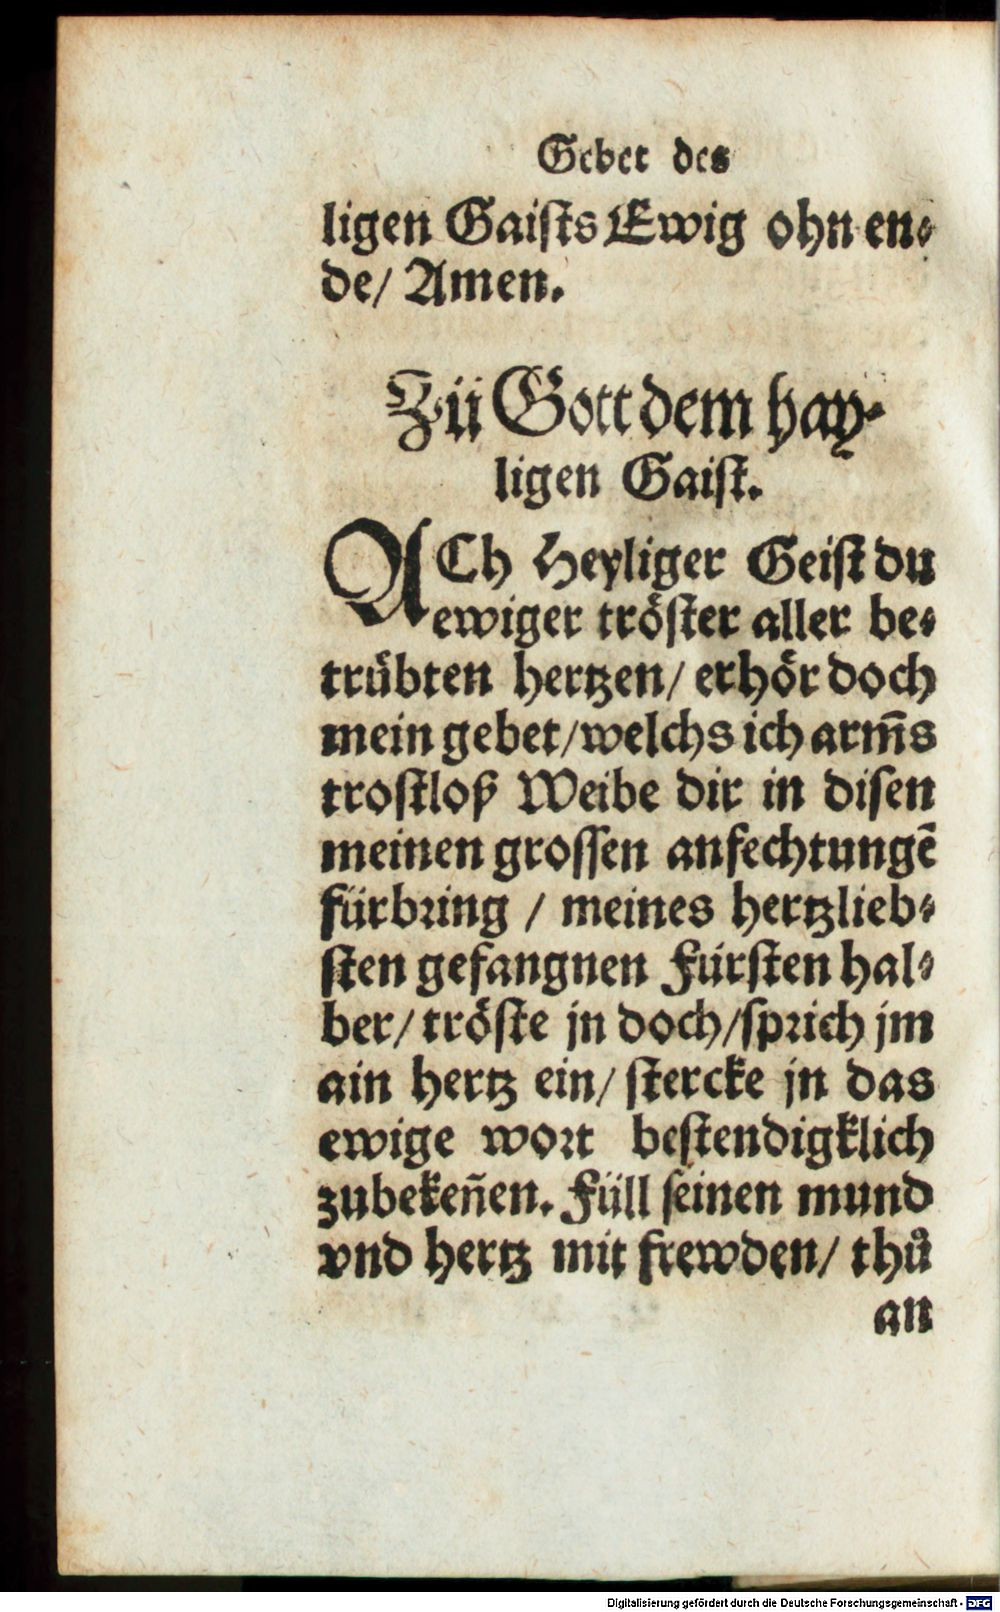 Gebet des
ligen Gaists Ewig ohn en⸗
de/ Amen.
Zü Gott dem hay⸗
ligen Gaist.
ACh Heyliger Geist du
ewiger tröster aller be⸗
trübten hertzen/ erhör doch
mein gebet/ welchs ich arm̄s
trostloß Weibe dir in disen
meinen grossen anfechtungē
fürbring / meines hertzlieb⸗
sten gefangnen Fürsten hal⸗
ber/ tröste jn doch/ sprich jm
ain hertz ein/ stercke jn das
ewige wort bestendigklich
zubekeñen. Füll seinen mund
vnd hertz mit frewden/ thů
an
Digitalisierung gefördert durch die Deutsche Forschungsgemeinschaft - DFG